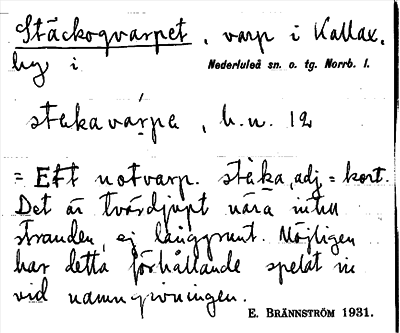 Stäckogvarpet, varp i Kallax,
by i Nederluleå sn. o. tg. Norrb. l.
stakavarpa, h.n. 12
= Ett notvarp. stäka, adj = kort.
Det är tvärdjupt nära intill
stranden, ej långgrunt. Möjligen
har detta förhållande spelat in
vid namngivningen.
E. BRÄNNSTRÖM 1931.